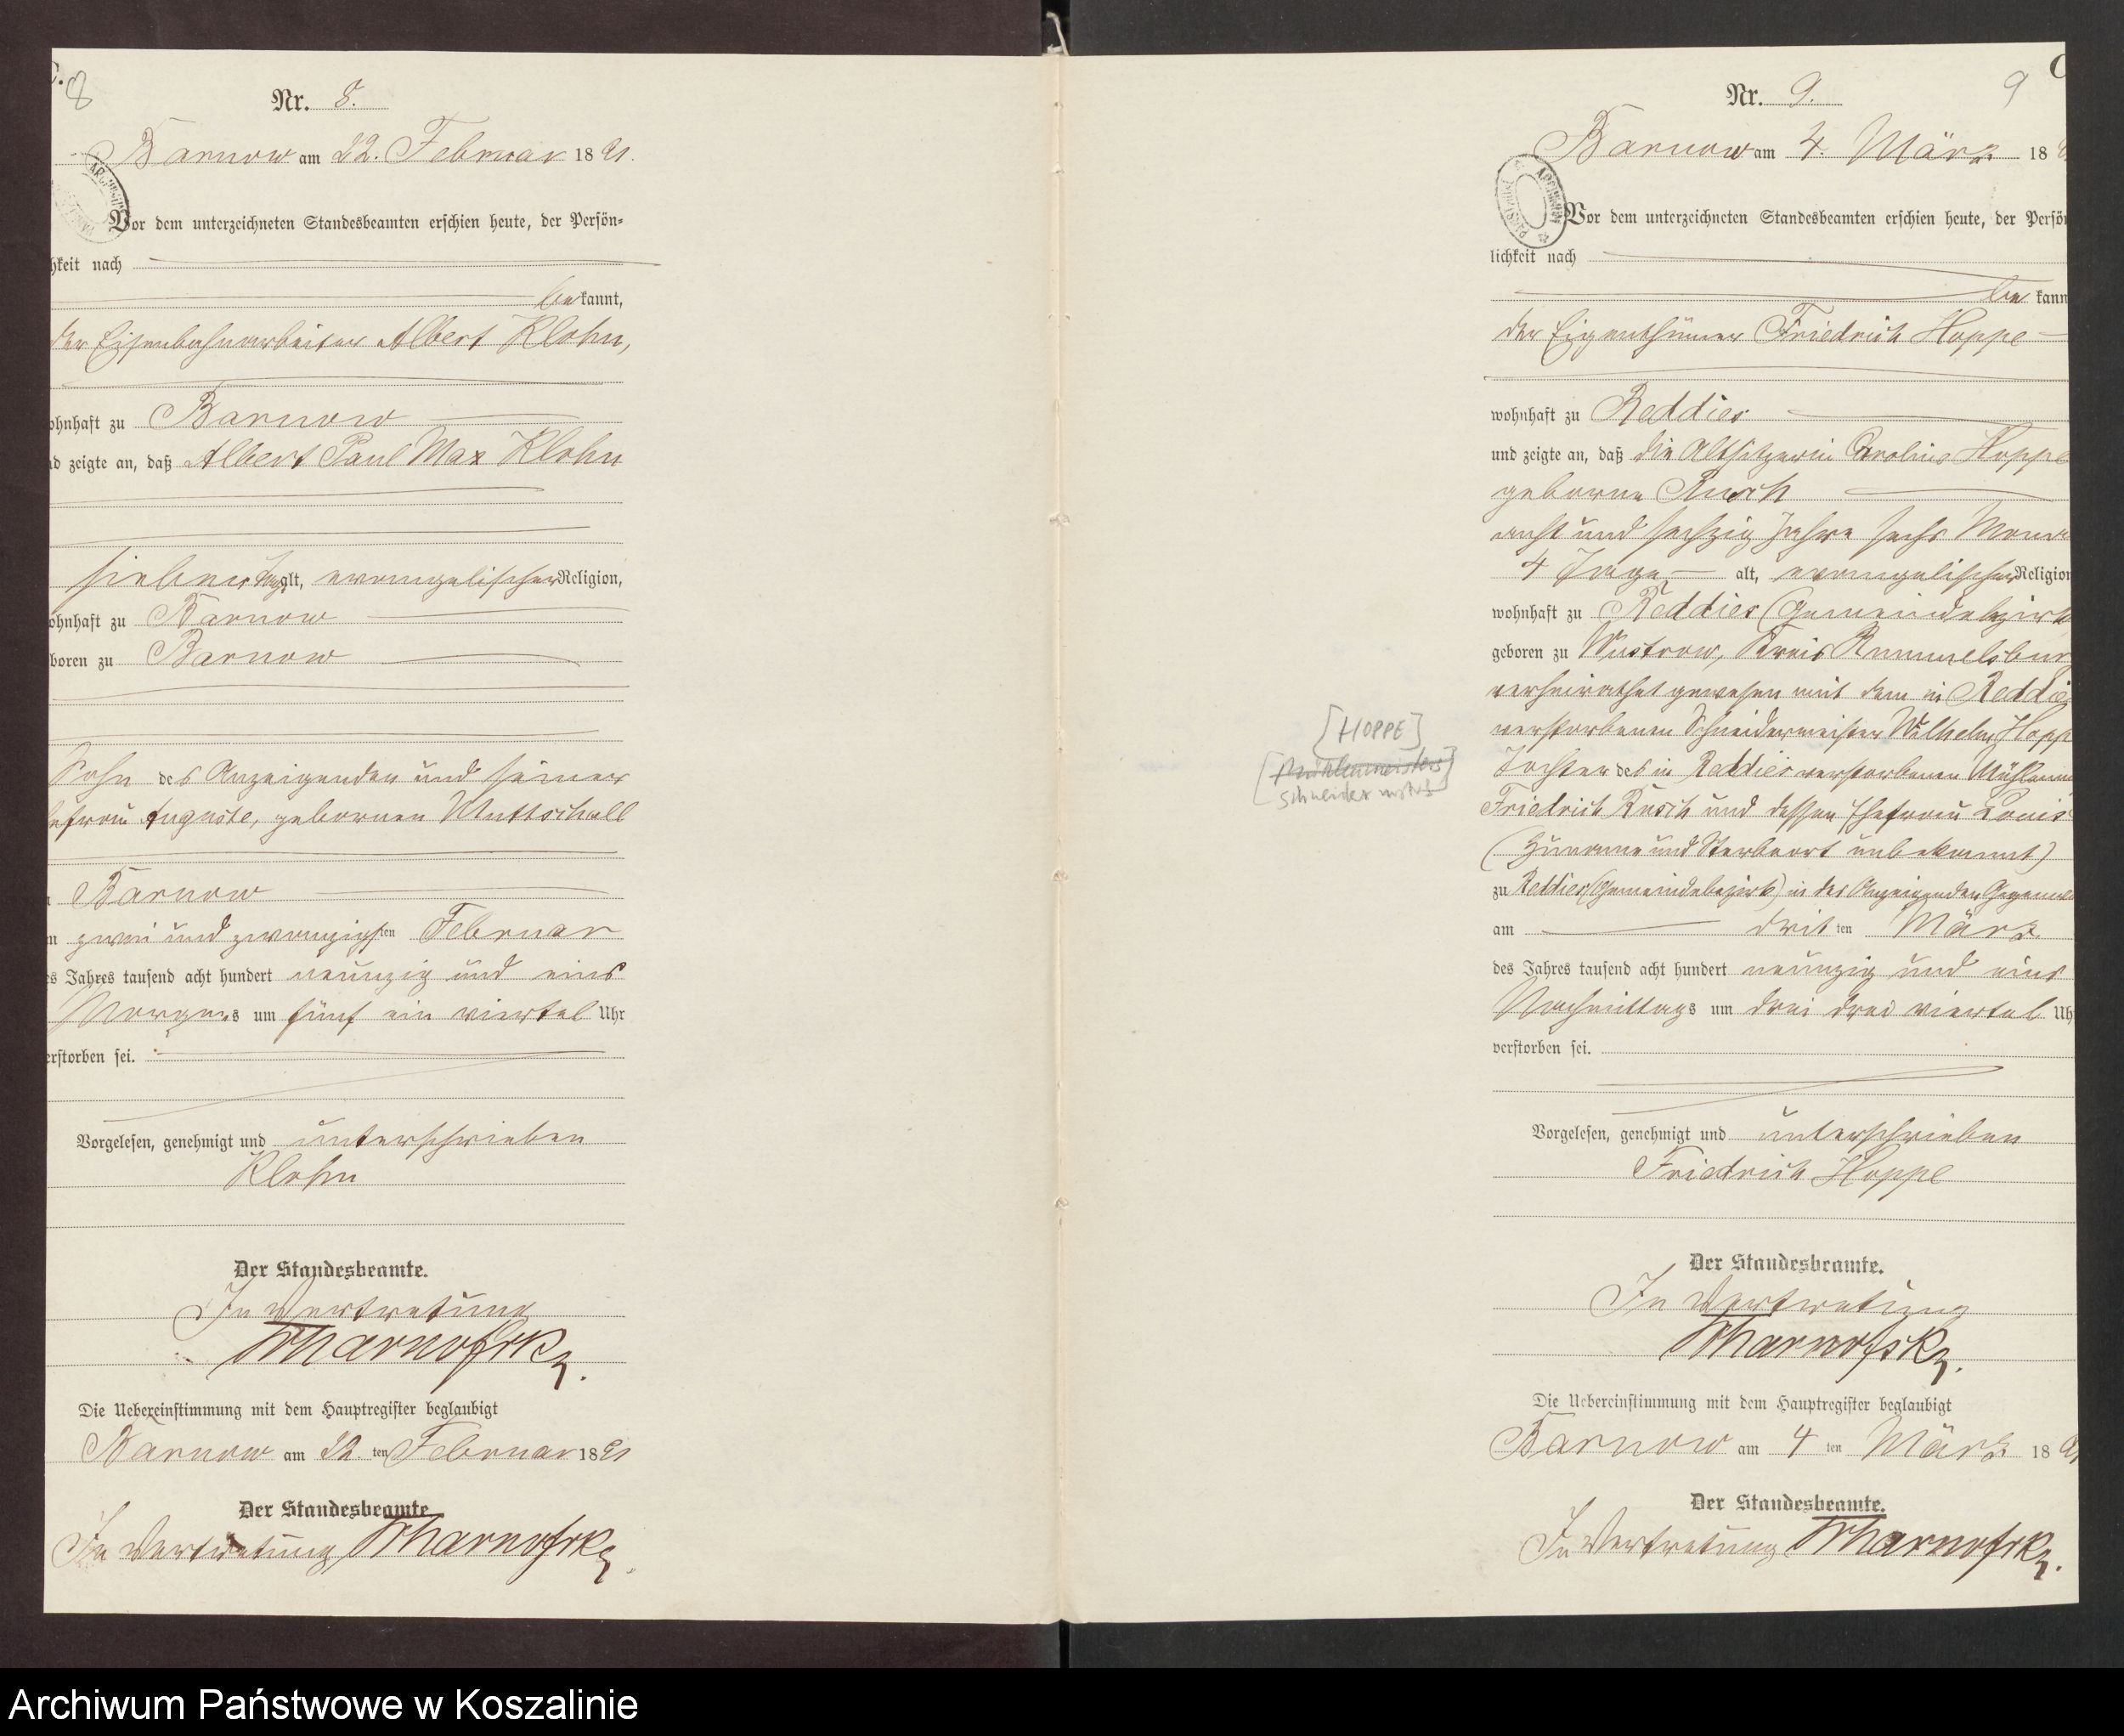 8
Nr. 8.
Barnow am 22. Februar 1891.
Vor dem unterzeichneten Standesbeamten erschien heute, der Persön-
hkeit nach
bekannt,
der Eisenbahnarbeiter Albert Klohn,
ohnhaft zu Barnow
nd zeigte an, daß Albert Paul Max Klohn
sieben Tage alt, evangelischer Religion,
ohnhaft zu Barnow
boren zu Barnow
Sohn des Anzeigenden und seiner
efrau Auguste, gebornen Muttschall
Barnow
m zwei und zwanzigsten Februar
es Jahres tausend acht hundert neunzig und eins
Morgens um fünf ein viertel Uhr
erstorben sei.
Vorgelesen, genehmigt und unterschrieben
Klohn
Der Standesbeamte.
In Vertretung
Die Uebereinstimmung mit dem Hauptregister beglaubigt
Barnow am 22 ten Februar 1891
Der Standesbeamte
In Vertretung
[HOPPE]
[Mühlenmeisters]
Schneider
9
Nr. 9.
Barnow am 4. März 18
ARCHIWUM PAŃSTWOWE
Vor dem unterzeichneten Standesbeamten erschien heute, der Persön
lichkeit nach
be kann
der Eigenthümer Friedrich Hoppe
wohnhaft zu Reddies
und zeigte an, daß die Altsitzerin Caroline Hoppe
geborne Rusch
acht und sechzig Jahre sechs Mona
4 Tage alt, evangelischer Religion
wohnhaft zu Reddies (Gemeindebezirk
geboren zu Wustrow, Kreis Rummelsburg
verheirathet gewesen mit dem in Reddies
verstorbenen Schneidermeister Wilhelm Hopp
Tochter des in Reddies verstorbenen Mühlenm
Friedrich Rusch und dessen Ehefrau Louis
(Zuname und Sterbeort unbekannt)
zu Reddies (Gemeindebezirk) in des Anzeigenden Gegenwa
am dritten März
des Jahres tausend acht hundert neunzig und eins
Nachmittags um drei drei viertel Uh
verstorben sei.
Vorgelesen, genehmigt und unterschrieben
Friedrich Hoppe
Der Standesbeamte.
In Vertretung
Die Uebereinstimmung mit dem Hauptregister beglaubigt
Barnow am 4 ten März 189
Der Standesbeamte.
In Vertretung
Archiwum Państwowe w Koszalinie